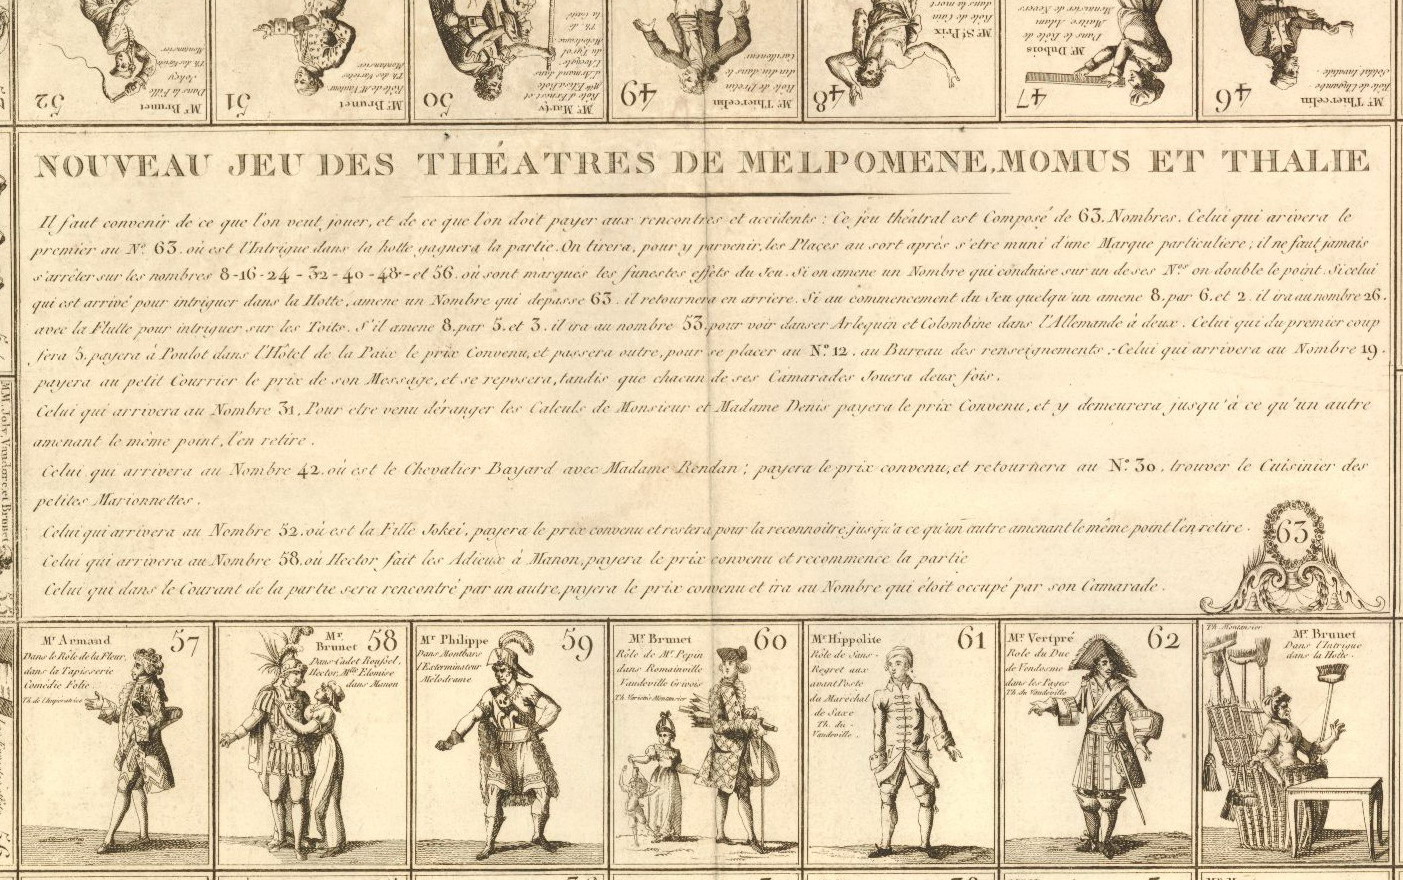 52
Mr Brunet
Dans la Fille
Jokey
Th. des Variétés
Montansier
51
Mr Brunet
Th. des Variétés
Montansier
50
Mr Marty
Rôle d'Ernest et
du Tyrol
Mélodrame
Th. de
la Gaité
49
Mr Thiercelin
48
Mr St. Prix
Rôle de Cain
dans la mort
47
Mr Dubois
Dans le Rôle de
Maitre Adam
Menuisier de Nevers
46
Mr Thiercelin
Soldat Invalide
NOUVEAU JEU DES THÉATRES DE MELPOMENE, MOMUS ET THALIE
Il faut convenir de ce que l'on veut jouer, et de ce que l'on doit payer aux rencontres et accidents : Ce jeu théatral est Composé de 63. Nombres. Celui qui arivera le
premier au No. 63. où est l'Intrigue dans la hotte gagnera la partie. On tirera, pour y parvenir, les Places au sort après s'etre muni d'une Marque particuliere ; il ne faut jamais
s'arrêter sur les nombres 8-16-24-32-40-48-et 56. où sont marqués les funestes effets du Jeu. Si on amene un Nombre qui conduise sur un de ses Nos on double le point. Si celui
qui est arrivé pour intriguer dans la Hotte, amène un Nombre qui depasse 63. il retournera en arriere. Si au commencement du Jeu quelqu'un amene 8. par 6. et 2. il ira au nombre 26.
avec la Flutte pour intriguer sur les Toits. S'il amene 8. par 5. et 3. il ira au nombre 53. pour voir danser Arlequin et Colombine dans l'Allemande à deux. Celui qui du premier coup
fera 5. payera à Poulot dans l'Hôtel de la Paix le prix Convenu, et passera outre, pour se placer au No. 12. au Bureau des renseignements. Celui qui arrivera au Nombre 19.
payera au petit Courrier le prix de son Message, et se reposera, tandis que chacun de ses Camarades Jouera deux fois.
Celui qui arrivera au Nombre 31, Pour etre venu déranger les Calculs de Monsieur et Madame Denis payera le prix Convenu, et y demeurera jusqu'à ce qu'un autre
amenant le même point, l'en retire.
Celui qui arrivera au Nombre 42. où est le Chevalier Bayard avec Madame Rendan ; payera le prix convenu, et retournera au No. 30. trouver le Cuisinier des
petites Marionnettes.
Celui qui arrivera au Nombre 52. où est la Fille Jokei, payera le prix convenu et restera pour la reconnoitre, jusqu'a ce qu'un autre amenant le même point l'en retire.
Celui qui arrivera au Nombre 58. où Hector fait les Adieux à Manon, payera le prix convenu et recommence la partie
Celui qui dans le Courant de la partie sera rencontré par un autre, payera le prix convenu et ira au Nombre qui étoit occupé par son Camarade.
63
MM. Joly, Vaudoré, et Brunet
Mr Armand
57
Dans le Rôle de la Fleur,
dans la Tapisserie
Comédie Folie
Th. de l'Imperatrice
Mr Brunet
58
Dans Cadet Roussel,
Hector, Mlle Elomise
dans Manon
Mr Philippe
59
Dans Montbars
l'Exterminateur
Mélodrame
Mr Brunet
60
Rôle de Mr Pepin
dans Romainville
Vaudeville Grivois
Th. Variétés Montansier
Mr Hippolite
61
Rôle de Sans-
Regret aux
avant Poste
du Maréchal
de Saxe
Th. du
Vaudeville.
Mr Vertpré
62
Role du Duc
de Vendosme
dans les Pages
Th. du Vaudeville
Th. Montansier
Mr Brunet
Dans l'Intrigue
dans la Hotte.